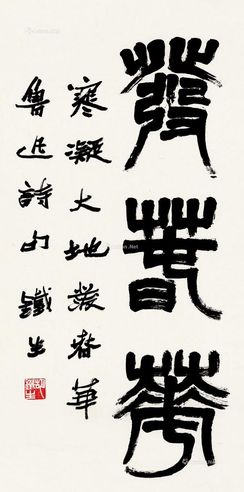 發春華
寒凝大地發春華
魯迅詩句 鐵生